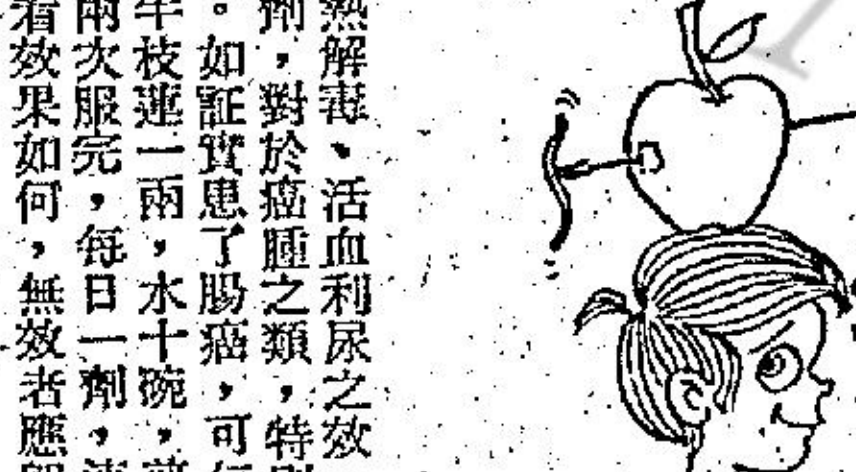 熱解毒、活血利尿之效
劑,對於癌腫之類,特別
。如証實患了腸癌,可
半枝蓮一兩,水十碗,
兩次服完,每日一劑,連
看效果如何,無效者應